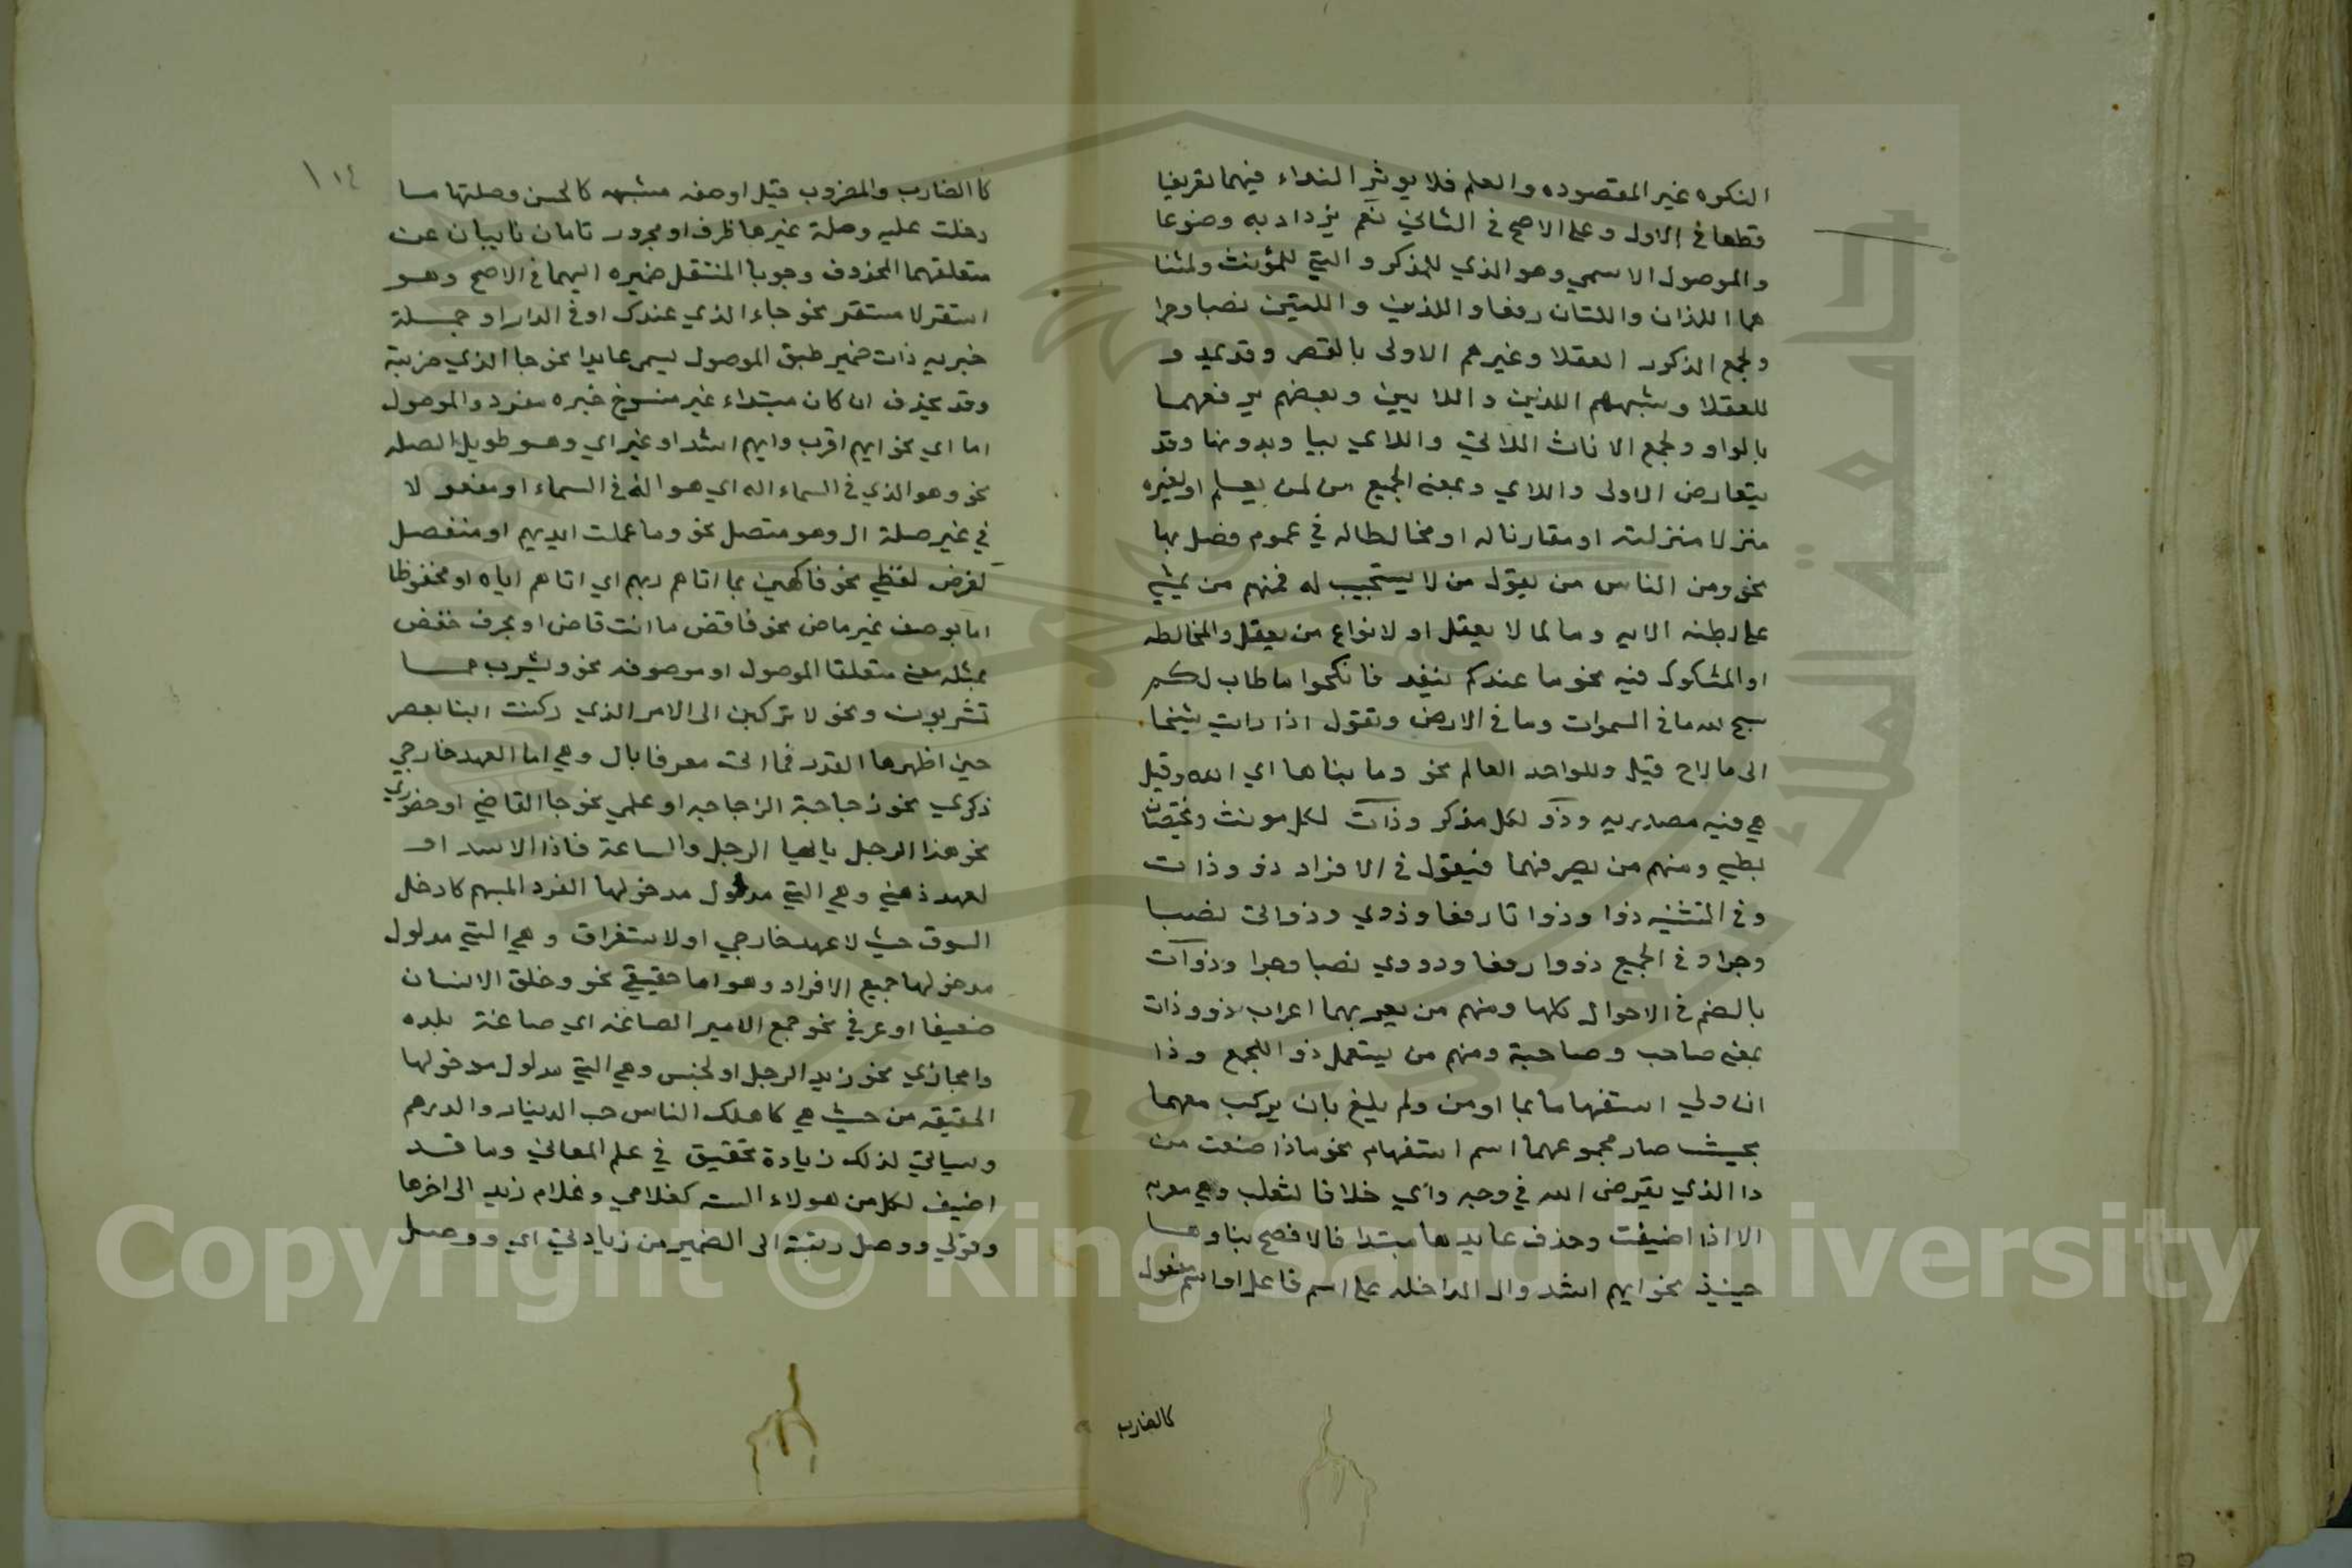 النكره غير المقصوده والعلم فلا يوثر النداء فيهما تعريفا
قطعا في الاول وعلى الاصح في الثاني نعم يزداد به وضوعا
والموصول الاسمي وهو الذي للمذكر والتي للمؤنث ولمثنا
هما اللذان واللتان رفعا واللذين واللتين نصبا وجرا
ولجمع الذكور العقلا وغيرهم الاولى بالقصر وقد يمد و
للعقلا وشبههم اللذين واللايين وبعضهم يرفعهما
بالواو ولجمع الاناث اللاتي واللاي بيا وبدونها وقد
يتعارض الاولى واللاي وبمعنى الجميع من لمن يعلم او لغيره
منزلا منزلته او مقارنا له او مخالطا له في عموم فصل بها
نحو ومن الناس من يقول من لا يستجيب له فمنهم من يمشي
على بطنه الايه وما لما لا يعقل او لانواع من يعقل والمخالطه
او المشكوك فيه نحو ما عندكم ينفد فانكحوا ما طاب لكم
سبح لله ما في السموات وما في الارض وتقول اذا رايت شيخا
الى ما لاح قيل وللواحد العالم نحو وما بناها اي الله وقيل
هي فيه مصدريه وذو لكل مذكر وذات لكل مونث ويختصان
بطي ومنهم من يصرفهما فيقول في الافراد ذو وذات
وفي التثنيه ذوا وذواتا رفعا وذوي وذواتي نصبا
وجرا وفي الجميع ذووا رفعا وذووي نصبا وجرا وذوات
بالضم في الاحوال كلها ومنهم من يعربهما اعراب ذو وذات
بمعنى صاحب وصاحبة ومنهم من يستعمل ذو اللجمع وذا
ان ولي استفهاما بما او من ولم يلغ بان يركب معهما
بحيث صار مجموعهما اسم استفهام نحو ماذا صنعت من
ذا الذي يقرض الله في وجه واي خلافا لثعلب وهي معربه
الا اذا اضيفت وحذف عايدها مبتدا فالافصح بناوها
حينيذ نحو ايهم اشد وال الداخله على اسم فاعل او اسم مفعول
كالضارب
١١٤
كا الضارب والمضروب قيل او صفه مشبهه كالحسن وصلتها ما
دخلت عليه وصلة غيرها ظرف او مجرور تامان نايبان عن
متعلقهما المحذوف وجوبا المنتقل ضميره اليهما في الاصح وهو
استقر لا مستقر نحو جاء الذي عندك او في الدار او جملة
خبريه ذات ضمير طبق الموصول يسمى عايدا نحو جا الذي ضربته
وقد يحذف ان كان مبتداء غير منسوخ خبره مفرد والموصول
اما اي نحو ايهم اقرب وايهم اشد او غير اي وهو طويل الصله
نحو وهو الذي في السماء اله اي هو اله في السماء او مفعولا
في غير صلة ال وهو متصل نحو وما عملت ايديهم او منفصل
لغرض لفظي نحو فاكهين بما اتاهم ربهم اي اتاهم اياه او مخفوظا
اما بوصف غير ماض نحو فاقض ما انت قاض او بحرف خفض
بمثله معنى متعلقا الموصول او موصوفه نحو ويشرب مما
تشربون ونحو لا تركبن الى الامر الذي ركنت ابنا يعصر
حين اظهرها القدر فما اتى معرفا بال وهي اما العهد خارجي
ذكري نحو زجاجة الزجاجه او علمي نحو جا القاضي او حضوري
نحو هذا الرجل يا ايها الرجل والساعة فاذا الاسد او
لعهد ذهني وهي التي مدلول مدخولها الفرد المبهم كادخل
السوق حيث لا عهد خارجي او لاستغراق وهي التي مدلول
مدخولها جميع الافراد وهو اما حقيقي نحو وخلق الانسان
ضعيفا او عرفي نحو جمع الامير الصاغه اي صاغة بلده
وامجازي نحو زيد الرجل او لجنس وهي التي مدلول مدخولها
الحقيقه من حيث هي كاهلك الناس حب الدينار والدرهم
وسياتي لذلك زيادة تحقيق في علم المعاني وما قد
اضيف لكل من هولاء الست كغلامي وغلام زيد الى اخرها
وقولي ووصل رتبة الى الضمير من زيادتي اي ووصل
Copyright © King Saud University